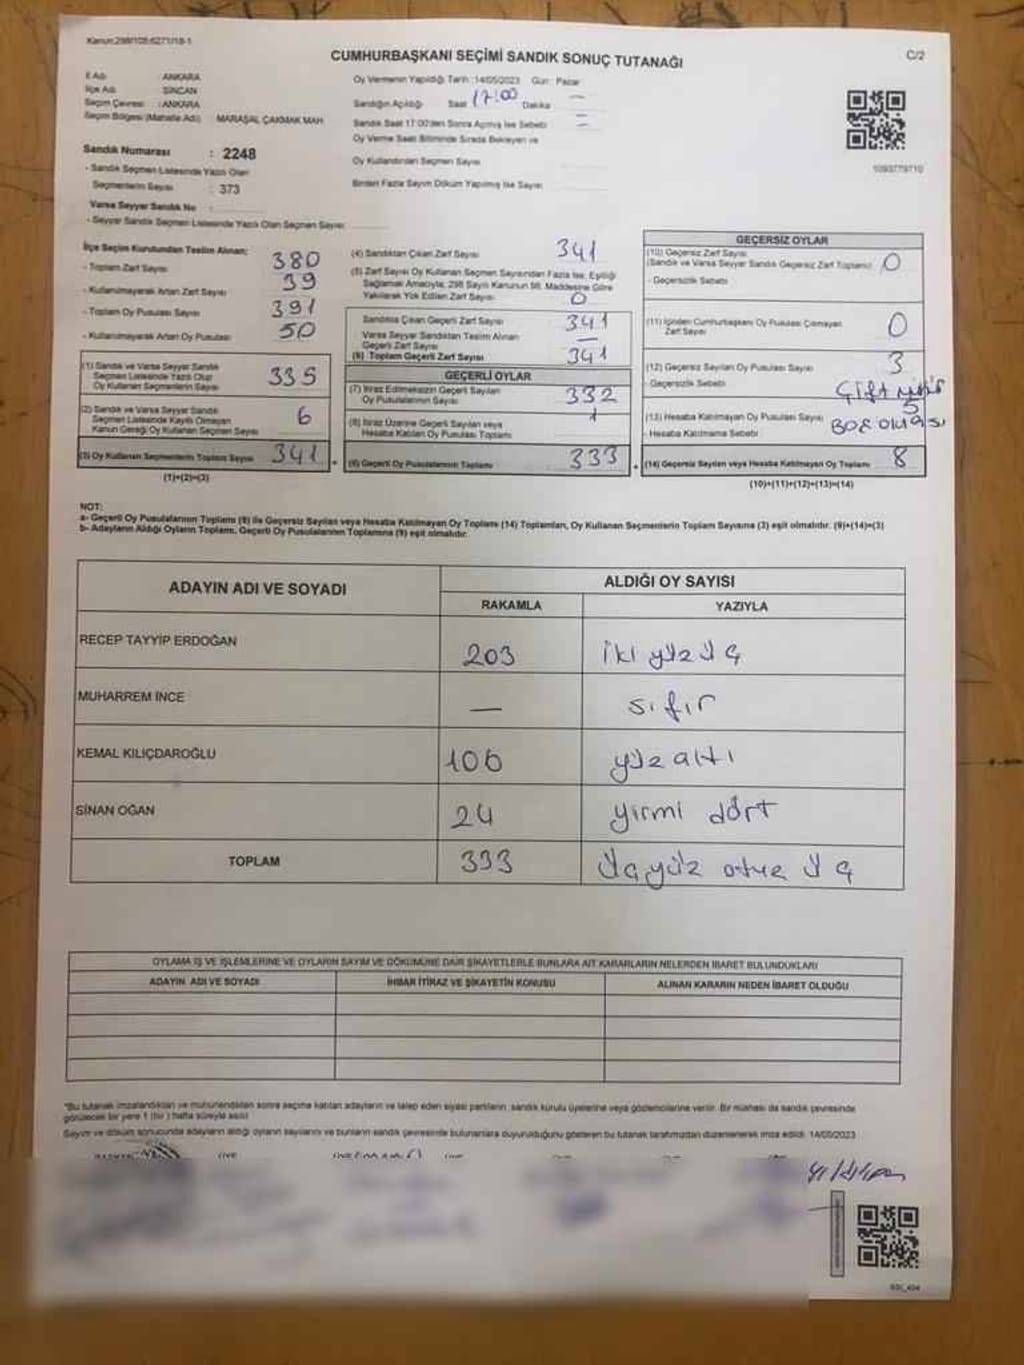 Kanun:298/105;6271/18-1
C/2
CUMHURBAŞKANI SEÇİMİ SANDIK SONUÇ TUTANAĞI
İl Adı : ANKARA
İlçe Adı : SİNCAN
Seçim Çevresi : ANKARA
Seçim Bölgesi (Mahalle Adı) MARAŞAL ÇAKMAK MAH
Sandık Numarası : 2248
- Sandık Seçmen Listesinde Yazılı Olan
Seçmenlerin Sayısı : 373
Varsa Seyyar Sandık No :
- Seyyar Sandık Seçmen Listesinde Yazılı Olan Seçmen Sayısı
Oy Vermenin Yapıldığı Tarih :14/05/2023 Gün : Pazar
Sandığın Açıldığı Saat 17:00 Dakika —
Sandık Saat 17:00'den Sonra Açılmış İse Sebebi
Oy Verme Saat Bitiminde Sırada Bekleyen ve
Oy Kullandırılan Seçmen Sayısı
Birden Fazla Sayım Döküm Yapılmış İse Sayısı
1093779710
İlçe Seçim Kurulundan Teslim Alınan;
- Toplam Zarf Sayısı 380
- Kullanılmayarak Artan Zarf Sayısı 39
- Toplam Oy Pusulası Sayısı 391
- Kullanılmayarak Artan Oy Pusulası 50
(1) Sandık ve Varsa Seyyar Sandık
Seçmen Listesinde Yazılı Olup
Oy Kullanan Seçmenlerin Sayısı 335
(2) Sandık ve Varsa Seyyar Sandık
Seçmen Listesinde Kayıtlı Olmayan
Kanun Gereği Oy Kullanan Seçmen Sayısı 6
(3) Oy Kullanan Seçmenlerin Toplam Sayısı 341
(1)+(2)=(3)
(4) Sandıktan Çıkan Zarf Sayısı 341
(5) Zarf Sayısı Oy Kullanan Seçmen Sayısından Fazla İse, Eşitliği
Sağlamak Amacıyla, 298 Sayılı Kanunun 98. Maddesine Göre
Yakılarak Yok Edilen Zarf Sayısı 0
Sandıkta Çıkan Geçerli Zarf Sayısı 341
Varsa Seyyar Sandıktan Teslim Alınan
Geçerli Zarf Sayısı —
(6) Toplam Geçerli Zarf Sayısı 341
GEÇERLİ OYLAR
(7) İtiraz Edilmeksizin Geçerli Sayılan
Oy Pusulalarının Sayısı 332
(8) İtiraz Üzerine Geçerli Sayılan veya
Hesaba Katılan Oy Pusulası Toplamı 1
(9) Geçerli Oy Pusulalarının Toplamı 333
GEÇERSİZ OYLAR
(10) Geçersiz Zarf Sayısı
(Sandık ve Varsa Seyyar Sandık Geçersiz Zarf Toplamı) 0
- Geçersizlik Sebebi
(11) İçinden Cumhurbaşkanı Oy Pusulası Çıkmayan
Zarf Sayısı 0
(12) Geçersiz Sayılan Oy Pusulası Sayısı 3
- Geçersizlik Sebebi Çift
(13) Hesaba Katılmayan Oy Pusulası Sayısı 5
- Hesaba Katılmama Sebebi
(14) Geçersiz Sayılan veya Hesaba Katılmayan Oy Toplamı 8
(10)+(11)+(12)+(13)=(14)
NOT:
a- Geçerli Oy Pusulalarının Toplamı (9) ile Geçersiz Sayılan veya Hesaba Katılmayan Oy Toplamı (14) Toplamları, Oy Kullanan Seçmenlerin Toplam Sayısına (3) eşit olmalıdır. (9)+(14)=(3)
b- Adayların Aldığı Oyların Toplamı, Geçerli Oy Pusulalarının Toplamına (9) eşit olmalıdır.
ADAYIN ADI VE SOYADI ALDIĞI OY SAYISI
RAKAMLA YAZIYLA
RECEP TAYYİP ERDOĞAN 203 iki yüz üç
MUHARREM İNCE — sıfır
KEMAL KILIÇDAROĞLU 106 yüz altı
SİNAN OĞAN 24 yirmi dört
TOPLAM 333 üçyüz otuz üç
OYLAMA İŞ VE İŞLEMLERİNE VE OYLARIN SAYIM VE DÖKÜMÜNE DAİR ŞİKAYETLERLE BUNLARA AİT KARARLARIN NELERDEN İBARET BULUNDUKLARI
ADAYIN ADI VE SOYADI İHBAR İTİRAZ VE ŞİKAYETİN KONUSU ALINAN KARARIN NEDEN İBARET OLDUĞU
*Bu tutanak imzalandıktan ve mühürlendikten sonra seçime katılan adayların ve talep eden siyasi partilerin, sandık kurulu üyelerine veya gözlemcilerine verilir. Bir nüshası da sandık çevresinde
görülecek bir yere 1 (bir) hafta süreyle asılır
Sayım ve döküm sonucunda adayların aldığı oyların sayılarını ve bunların sandık çevresinde bulunanlara duyurulduğunu gösteren bu tutanak tarafımızdan düzenlenerek imza edildi. 14/05/2023